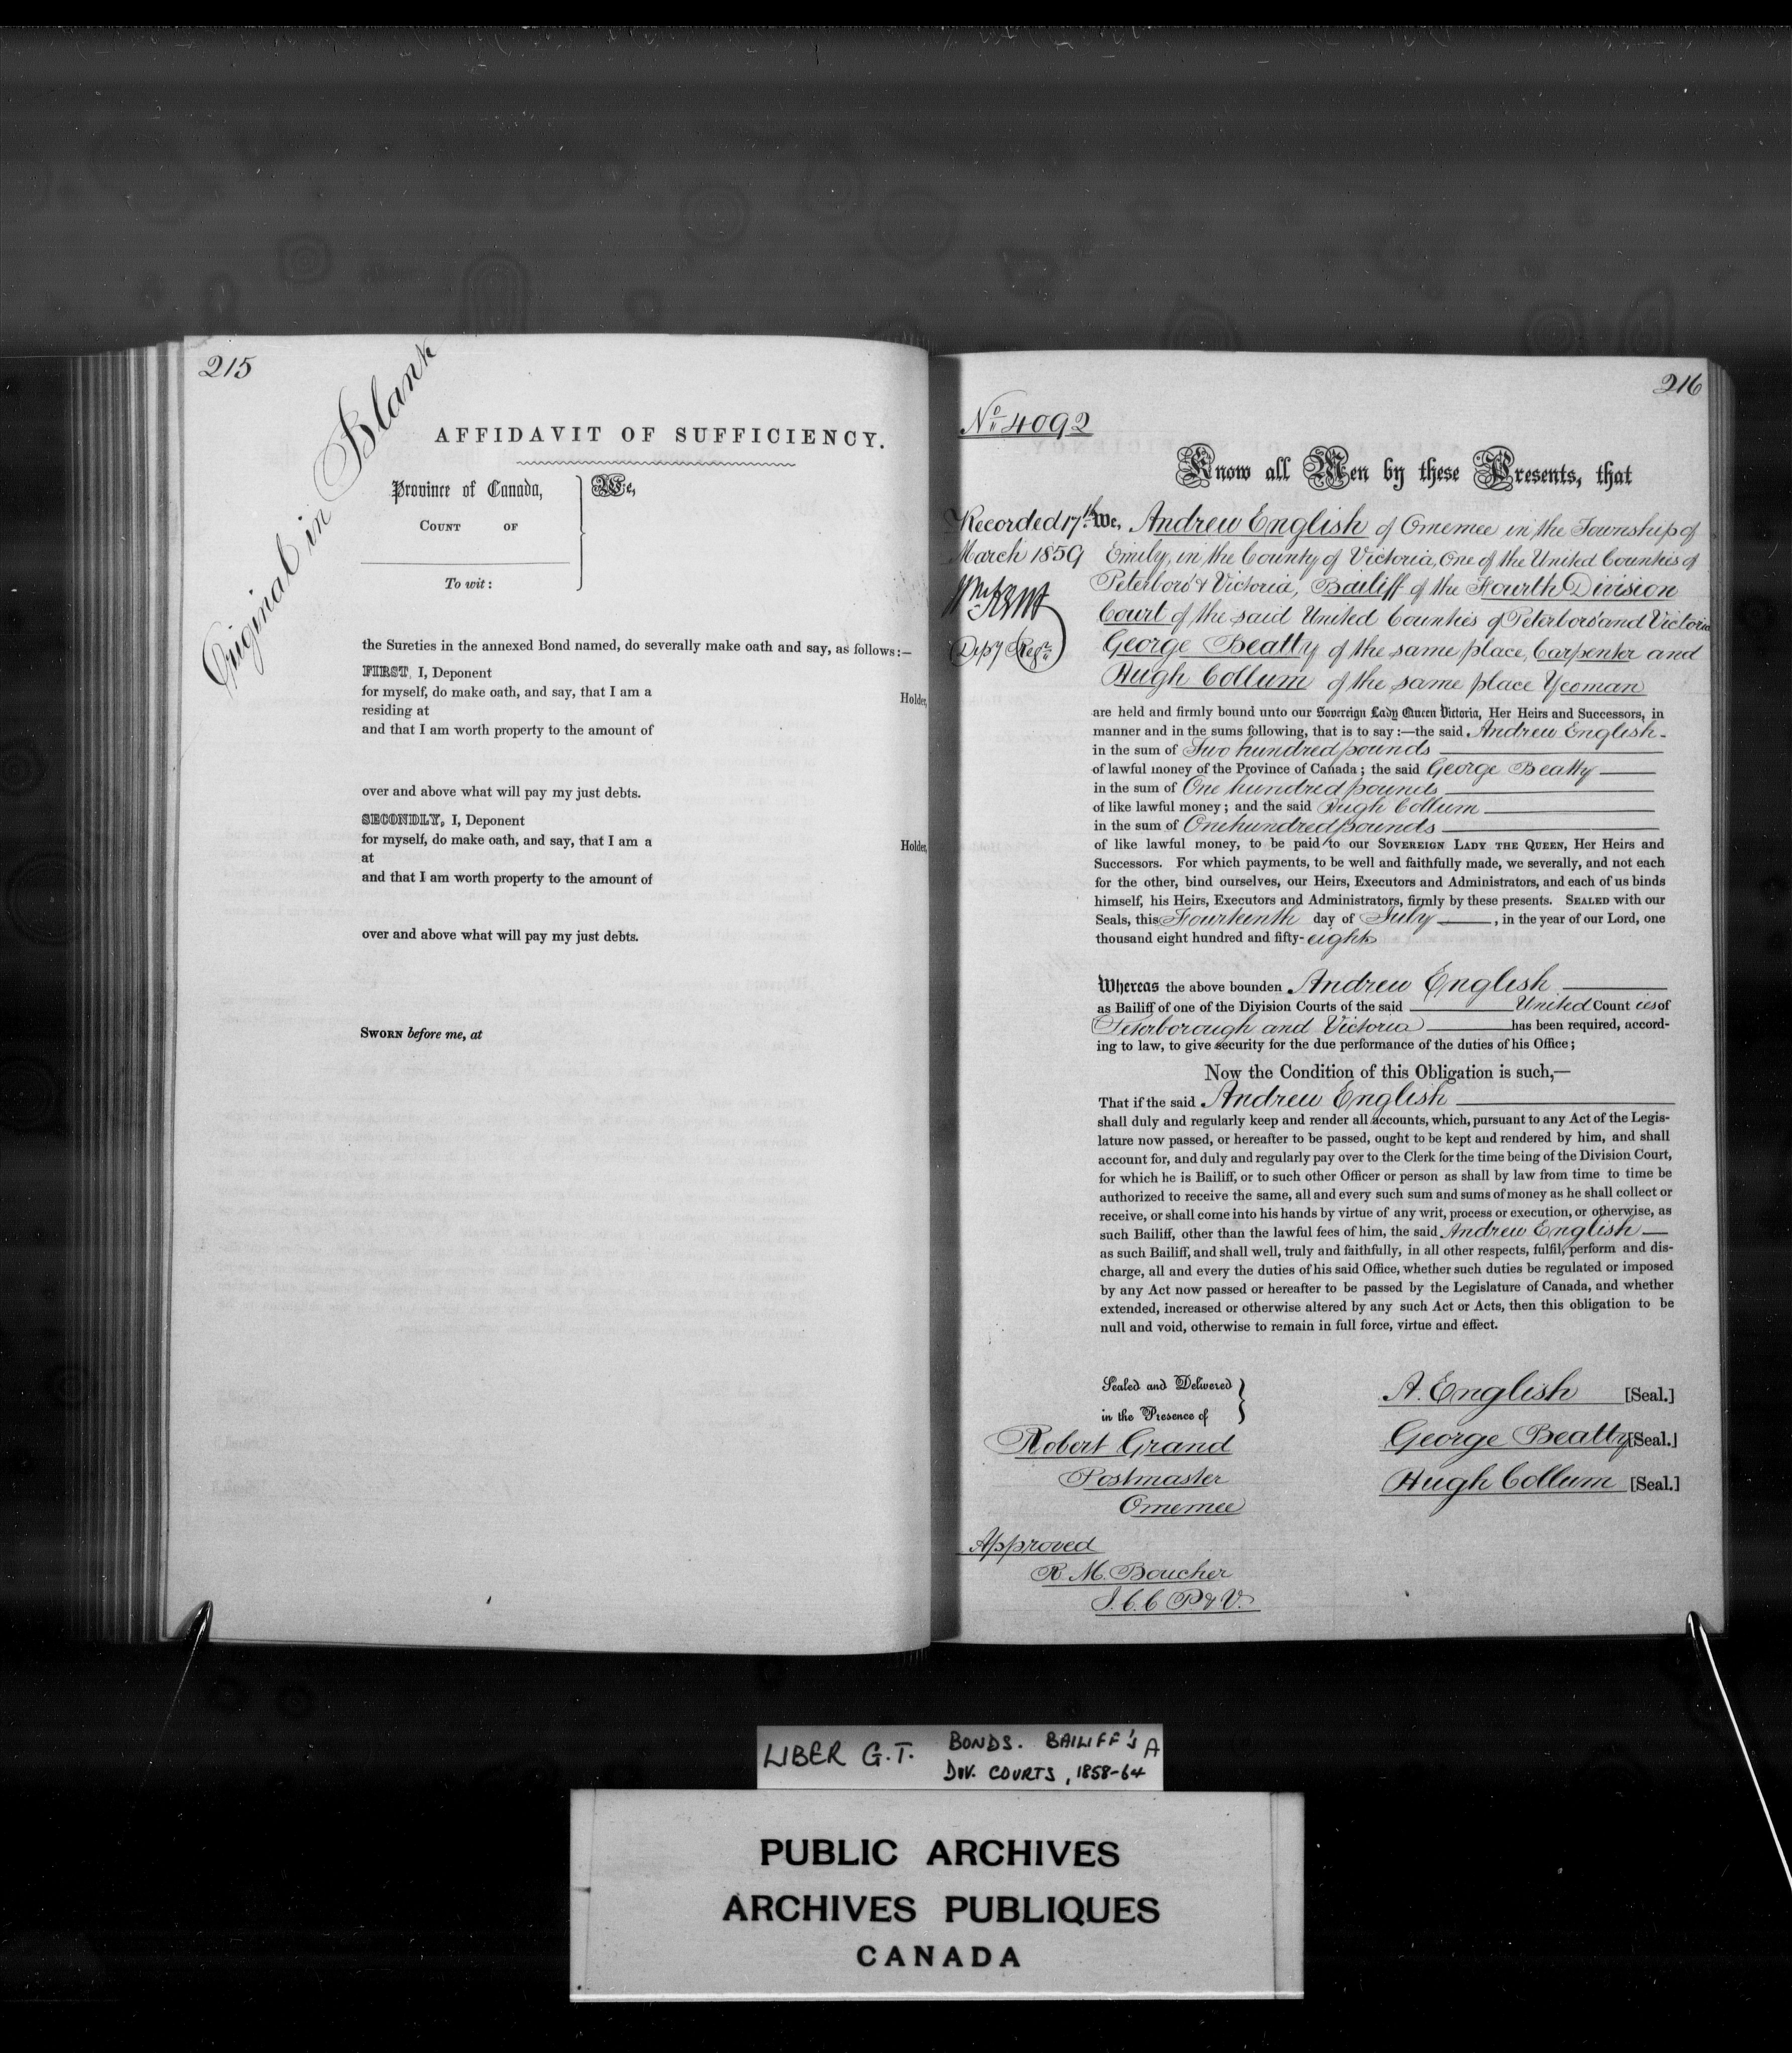 215
Original in Blank
AFFIDAVIT OF SUFFICIENCY.
Province of Canada,
We,
COUNT OF
To wit:
the Sureties in the annexed Bond named, do severally make oath and say, as follows:—
FIRST, I, Deponent
for myself, do make oath, and say, that I am a Holder,
residing at
and that I am worth property to the amount of
over and above what will pay my just debts.
SECONDLY, I, Deponent
for myself, do make oath, and say, that I am a Holder,
at
and that I am worth property to the amount of
over and above what will pay my just debts.
SWORN before me, at
216
No. 4092
Know all Men by these Presents, that
Recorded 17th
March 1859
Depy Regr
We, Andrew English of Omemee in the Township of
Emily, in the County of Victoria, One of the United Counties of
Peterboro' & Victoria, Bailiff of the Fourth Division
Court of the said United Counties of Peterboro' and Victoria
George Beatty of the same place, Carpenter and
Hugh Collum of the same place Yeoman
are held and firmly bound unto our Sovereign Lady Queen Victoria, Her Heirs and Successors, in
manner and in the sums following, that is to say:—the said Andrew English
in the sum of Two hundred pounds
of lawful money of the Province of Canada; the said George Beatty
in the sum of One hundred pounds
of like lawful money; and the said Hugh Collum
in the sum of One hundred pounds
of like lawful money, to be paid to our SOVEREIGN LADY THE QUEEN, Her Heirs and
Successors. For which payments, to be well and faithfully made, we severally, and not each
for the other, bind ourselves, our Heirs, Executors and Administrators, and each of us binds
himself, his Heirs, Executors and Administrators, firmly by these presents. SEALED with our
Seals, this Fourteenth day of July, in the year of our Lord, one
thousand eight hundred and fifty-eight
Whereas the above bounden Andrew English
as Bailiff of one of the Division Courts of the said United Counties of
Peterborough and Victoria has been required, accord-
ing to law, to give security for the due performance of the duties of his Office;
Now the Condition of this Obligation is such,—
That if the said Andrew English
shall duly and regularly keep and render all accounts, which, pursuant to any Act of the Legis-
lature now passed, or hereafter to be passed, ought to be kept and rendered by him, and shall
account for, and duly and regularly pay over to the Clerk for the time being of the Division Court,
for which he is Bailiff, or to such other Officer or person as shall by law from time to time be
authorized to receive the same, all and every such sum and sums of money as he shall collect or
receive, or shall come into his hands by virtue of any writ, process or execution, or otherwise, as
such Bailiff, other than the lawful fees of him, the said Andrew English
as such Bailiff, and shall well, truly and faithfully, in all other respects, fulfil, perform and dis-
charge, all and every the duties of his said Office, whether such duties be regulated or imposed
by any Act now passed or hereafter to be passed by the Legislature of Canada, and whether
extended, increased or otherwise altered by any such Act or Acts, then this obligation to be
null and void, otherwise to remain in full force, virtue and effect.
Sealed and Delivered
in the Presence of
Robert Grand
Postmaster
Omemee
A. English [Seal.]
George Beatty [Seal.]
Hugh Collum [Seal.]
Approved
R. M. Boucher
J.C.C P & V.
LIBER G.T. BONDS. BAILIFF'S A
DIV. COURTS, 1858-64
PUBLIC ARCHIVES
ARCHIVES PUBLIQUES
CANADA